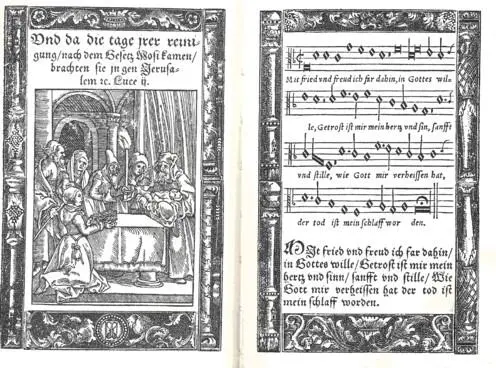 Vnd da die tage jrer reini-
gung/nach dem Gesetz Mosi kamen/
brachten sie jn gen Jerusa-
lem ꝛc. Luce ij.
Mit fried vnd freud ich far dahin, in Gottes wil-
le, Getrost ist mir mein hertz vnd sin, sanfft
vnd stille, wie Gott mir verheissen hat,
der tod ist mein schlaff wor den.
MIt fried vnd freud ich far dahin/
in Gottes wille/Getrost ist mir mein
hertz vnd sinn/ sanfft vnd stille/ Wie
Gott mir verheissen hat der tod ist
mein schlaff worden.